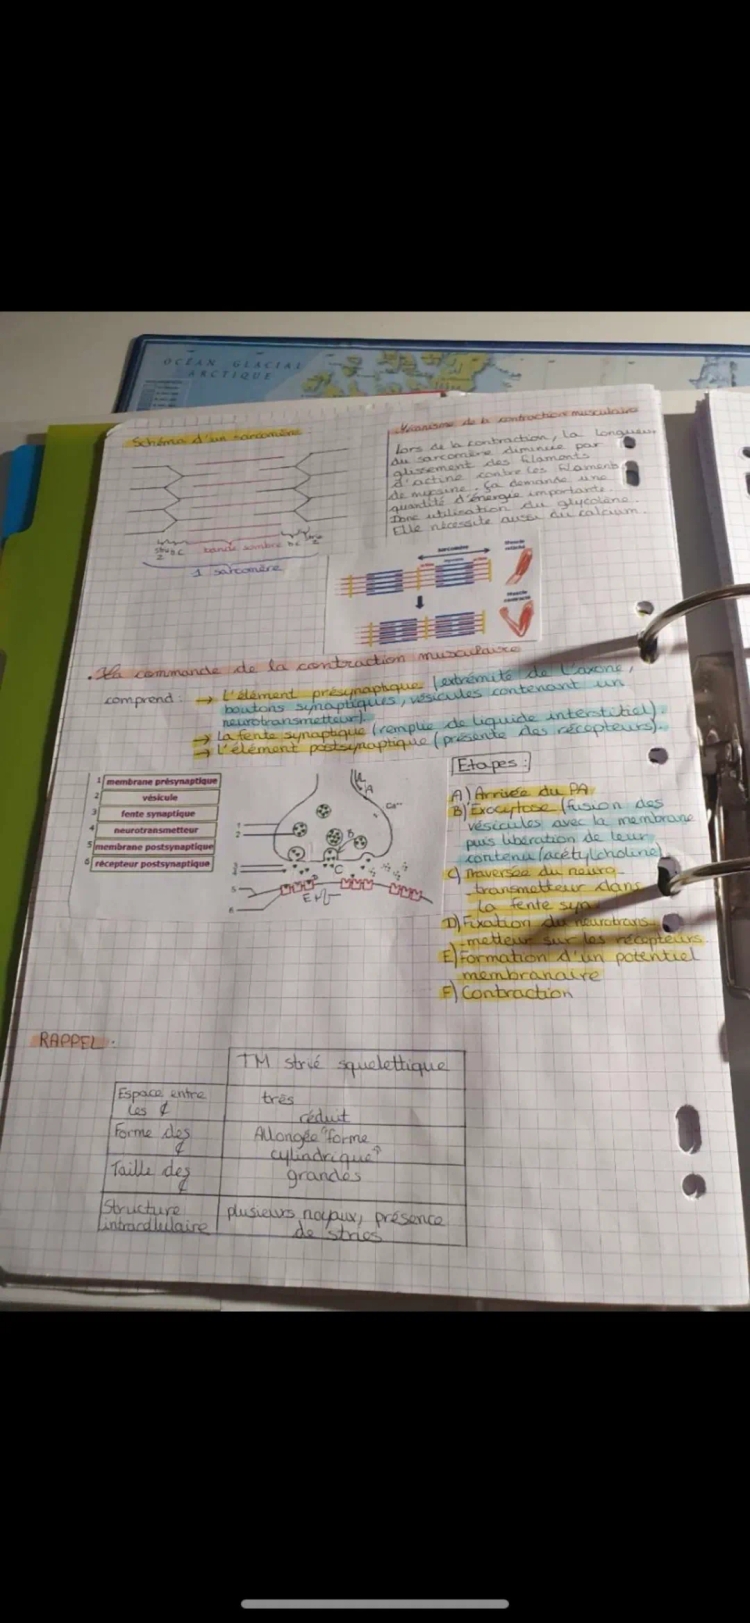 OCÉAN GLACIAL
ARCTIQUE
Schéma d'un sarcomère
bande sombre
1 sarcomère
Mécanisme de la contraction musculaire
Lors de la contraction, la longueur
du sarcomère diminue par
glissement des filaments
d'actine contre les filaments
de myosine. Ça demande une
quantité d'énergie importante.
Donc utilisation du glycogène.
Elle nécessite aussi du calcium.
SARCOMÈRE
. La commande de la contraction musculaire
comprend : → L'élément présynaptique (extrémité de l'axone,
boutons synaptiques, vésicules contenant un
neurotransmetteur)
→ La fente synaptique (remplie de liquide interstitiel).
→ L'élément postsynaptique (présente des récepteurs).
1 membrane présynaptique
2 vésicule
3 fente synaptique
4 neurotransmetteur
5 membrane postsynaptique
6 récepteur postsynaptique
A
Ca++
B
1
2
C
3
4
5
E
6
Etapes :
A) Arrivée du PA
B) Exocytose (fusion des
vésicules avec la membrane
puis libération de leur
contenu (acétylcholine)
C) Traversée du neuro
transmetteur dans
la fente syn.
D) Fixation du neurotrans
-metteur sur les récepteurs
E) Formation d'un potentiel
membranaire
F) Contraction
RAPPEL.
TM strié squelettique
Espace entre
les ₵
très
réduit
Forme des
₵
Allongée "forme
cylindrique"
Taille des
₵
grandes
Structure
intracellulaire
plusieurs noyaux, présence
de stries